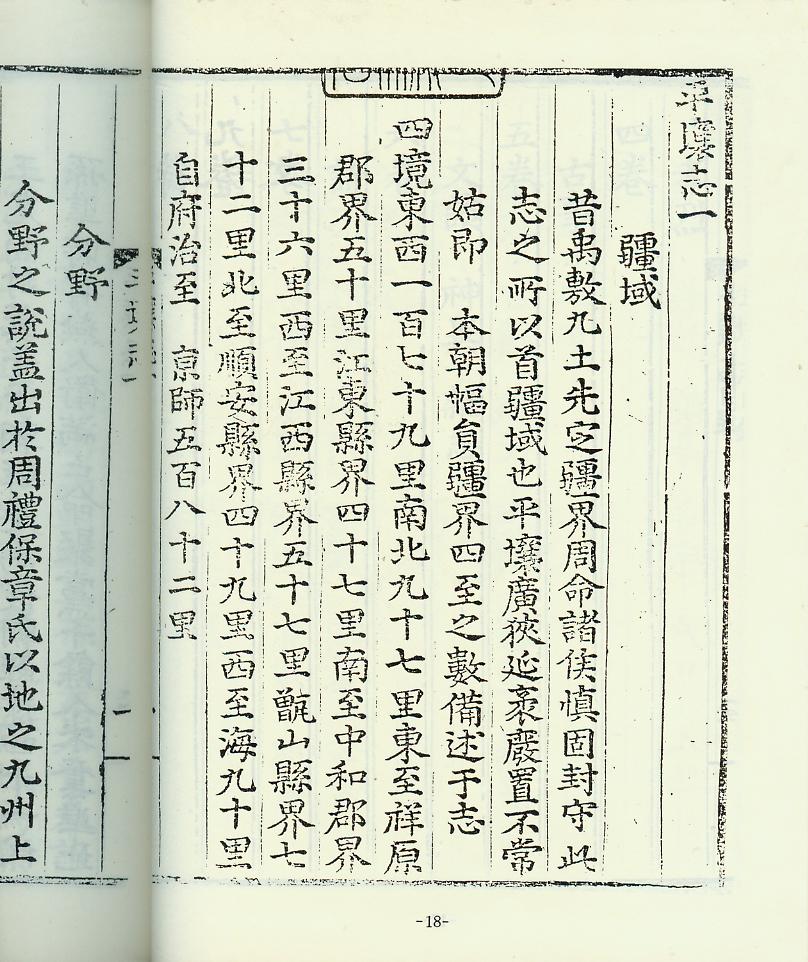 平壤志一
疆域
昔禹敷九土先定疆界周命諸侯慎固封守此
志之所以首疆域也平壤廣狹延袤廢置不常
姑即 本朝幅員疆界四至之數備述于志
四境東西一百七十九里南北九十七里東至祥原
郡界五十里江東縣界四十七里南至中和郡界
三十六里西至江西縣界五十七里甑山縣界七
十二里北至順安縣界四十九里西至海九十里
自府治至 京師五百八十二里
平壤志一
分野
分野之說盖出於周禮保章氏以地之九州上
-18-